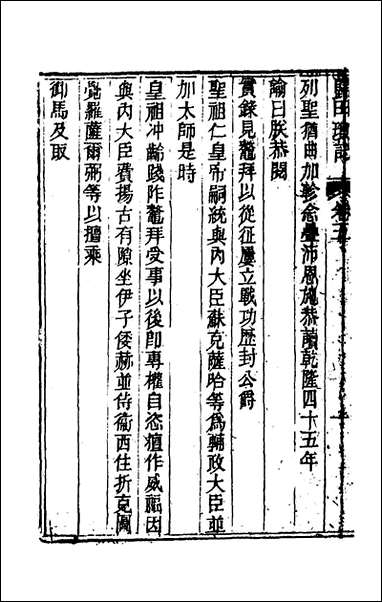 歸田瑣記 卷五
列聖猶曲加軫念疊沛恩施恭讀乾隆四十五年
諭曰朕恭閱
實錄見鰲拜以從征屢立戰功歷封公爵
聖祖仁皇帝嗣統與內大臣蘇克薩哈等爲輔政大臣並
加太師是時
皇祖冲齡踐阼鰲拜受事以後卽專權自恣擅作威福因
與內大臣費揚古有隙坐伊子倭赫並侍衞西住折克圖
覺羅薩爾弼等以擅乘
御馬及取